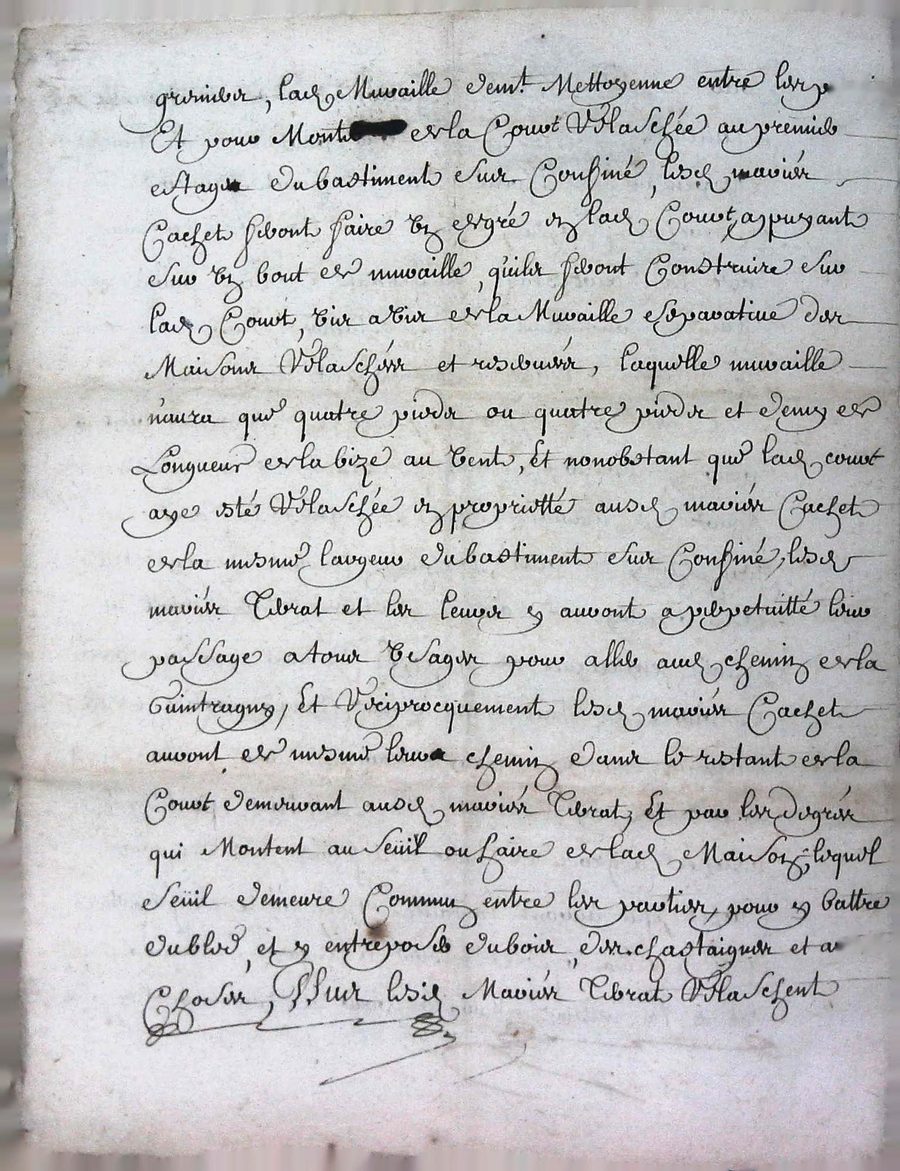 grenier, lad. Muraille dem.t Mettoyenne entre les p
Et pour Monte de la Court Relaschée au premier
estage du bastiment sus Confiné, lesd. mariés
Cachet feront faire un degré en lad. Court, appuyant
sur un bout de muraille, qu'ils feront Construire sur
lad. Court, vis a vis de la Muraille separative des
Maisons Relaschées et reservées, laquelle muraille
n'aura que quatre pieds ou quatre pieds et demy de
Longueur de la bize au vent, Et nonobstant que lad. court
aye esté Relaschée en proprietté ausd. mariés Cachet
de la mesme largeur du bastiment sus Confiné, lesd.
mariés Tibrat et les leurs y auront a perpetuitté leur
passage a tous usages pour aller aud. chemin de la
Guintragny, Et Reciprocquement lesd. mariés Cachet
auront de mesme leur chemin dans le restant de la
Court demeurant ausd. mariés Tibrat, Et par les degrés
qui Montent au Seüil ou faire de lad. Maison, lequel
Seüil demeure Commun entre les parties, pour y battre
du bled, et y entreposer du bois, des chastaignes et a
Choses, Plus lesd. Mariés Tibrat Relaschent